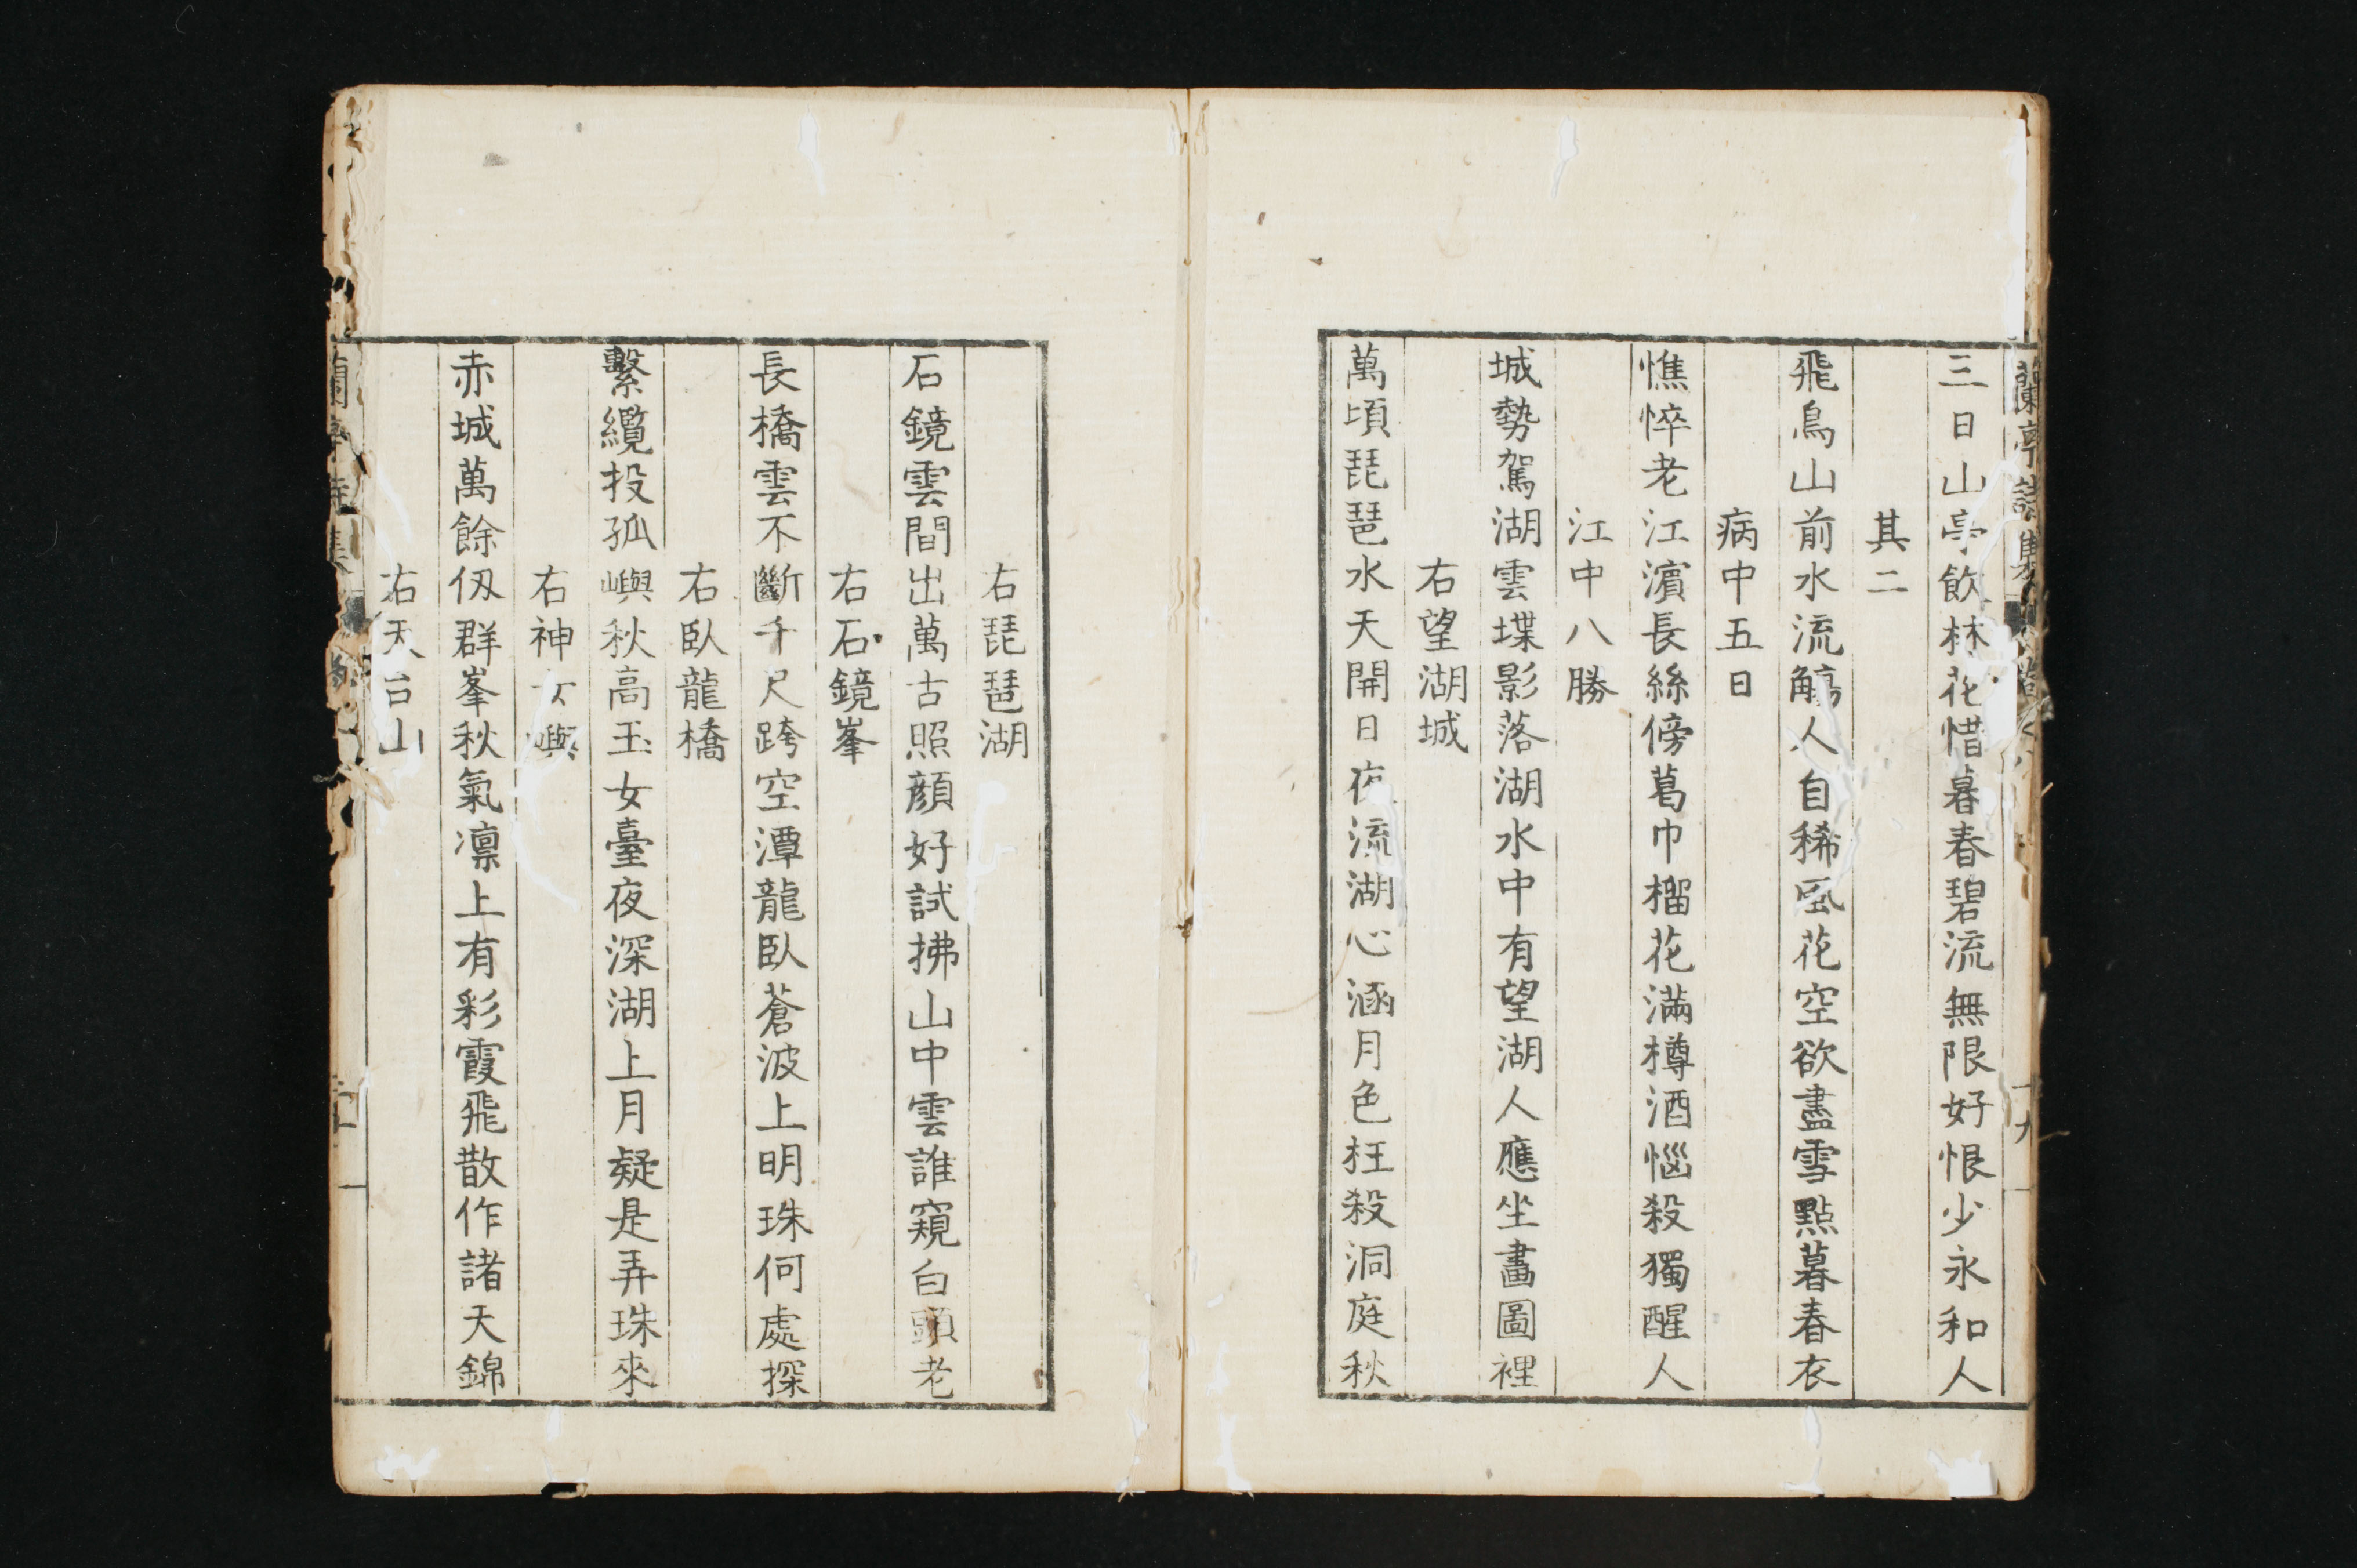 三日山亭飲林花惜暮春碧流無限好恨少永和人
其二
飛鳥山前水流觴人自稀風花空欲盡雪點暮春衣
病中五日
憔悴老江濵長絲傍葛巾榴花滿樽酒惱殺獨醒人
江中八勝
城勢駕湖雲堞影落湖水中有望湖人應坐畵圖裡
右望湖城
萬頃琵琶水天開日夜流湖心涵月色枉殺洞庭秋
右琵琶湖
石鏡雲間出萬古照顔好試拂山中雲誰窺白頭老
右石鏡峯
長橋雲不斷千尺跨空潭龍臥蒼波上明珠何處探
右臥龍橋
繫纜投孤嶼秋高玉女臺夜深湖上月疑是弄珠來
右神女嶼
赤城萬餘仭群峯秋氣凛上有彩霞飛散作諸天錦
右天台山